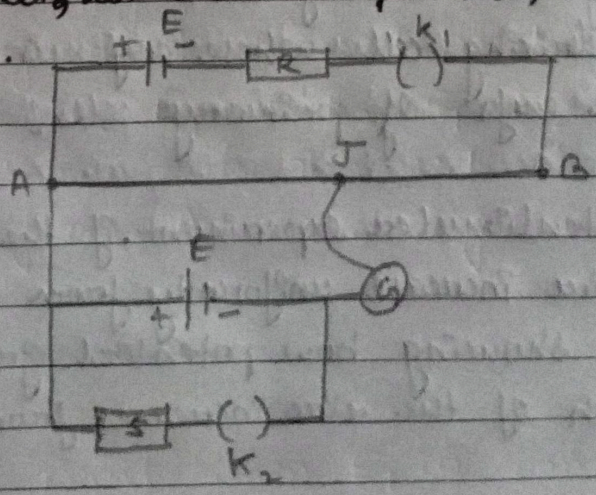 E
+ -
R
K1
A
J
B
E
+ -
G
S
K2